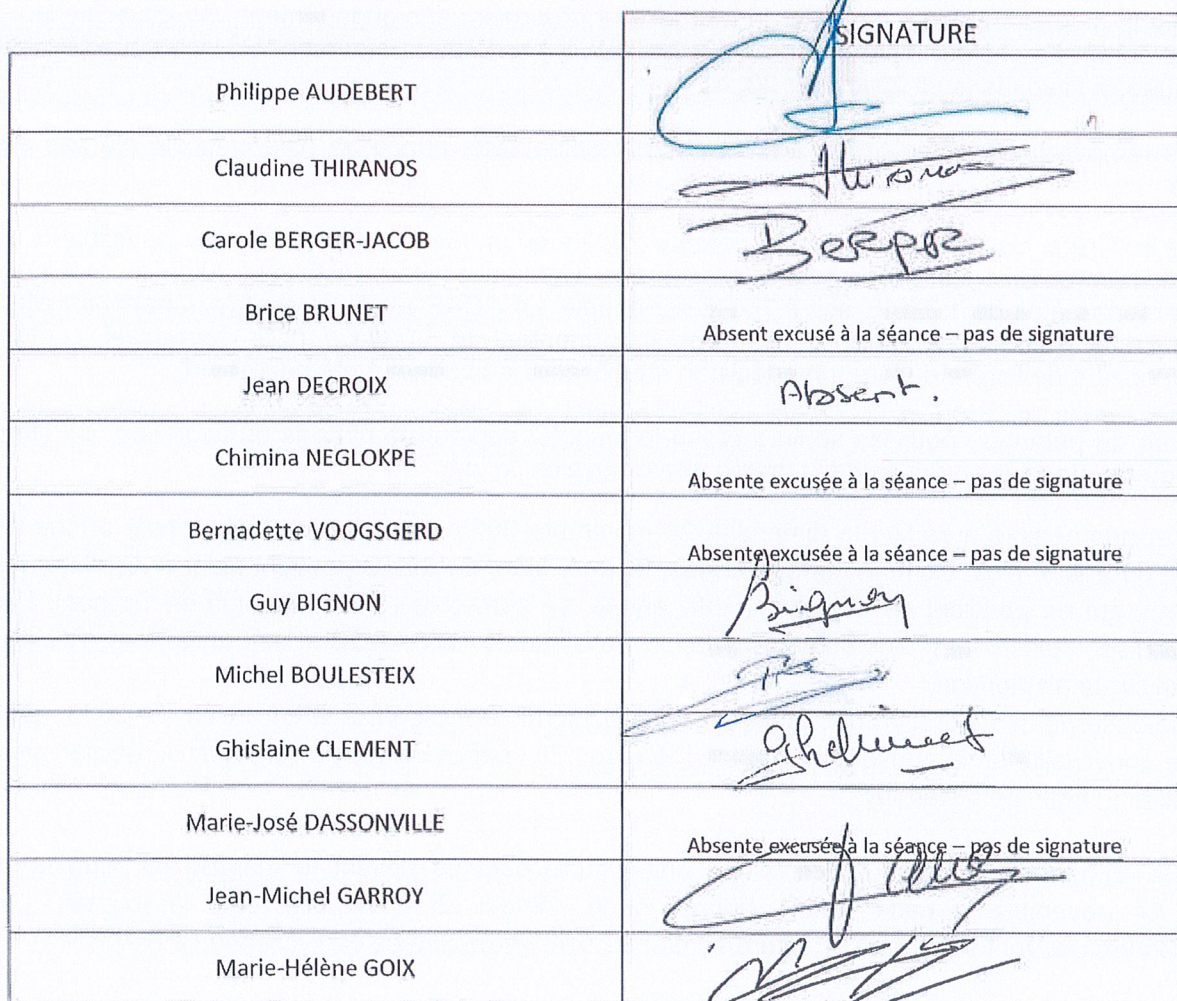 SIGNATURE
Philippe AUDEBERT
Claudine THIRANOS
Carole BERGER-JACOB
Brice BRUNET
Absent excusé à la séance – pas de signature
Jean DECROIX
Absent.
Chimina NEGLOKPE
Absente excusée à la séance – pas de signature
Bernadette VOOGSGERD
Absente excusée à la séance – pas de signature
Guy BIGNON
Bignon
Michel BOULESTEIX
Ghislaine CLEMENT
Marie-José DASSONVILLE
Absente excusée à la séance – pas de signature
Jean-Michel GARROY
Marie-Hélène GOIX